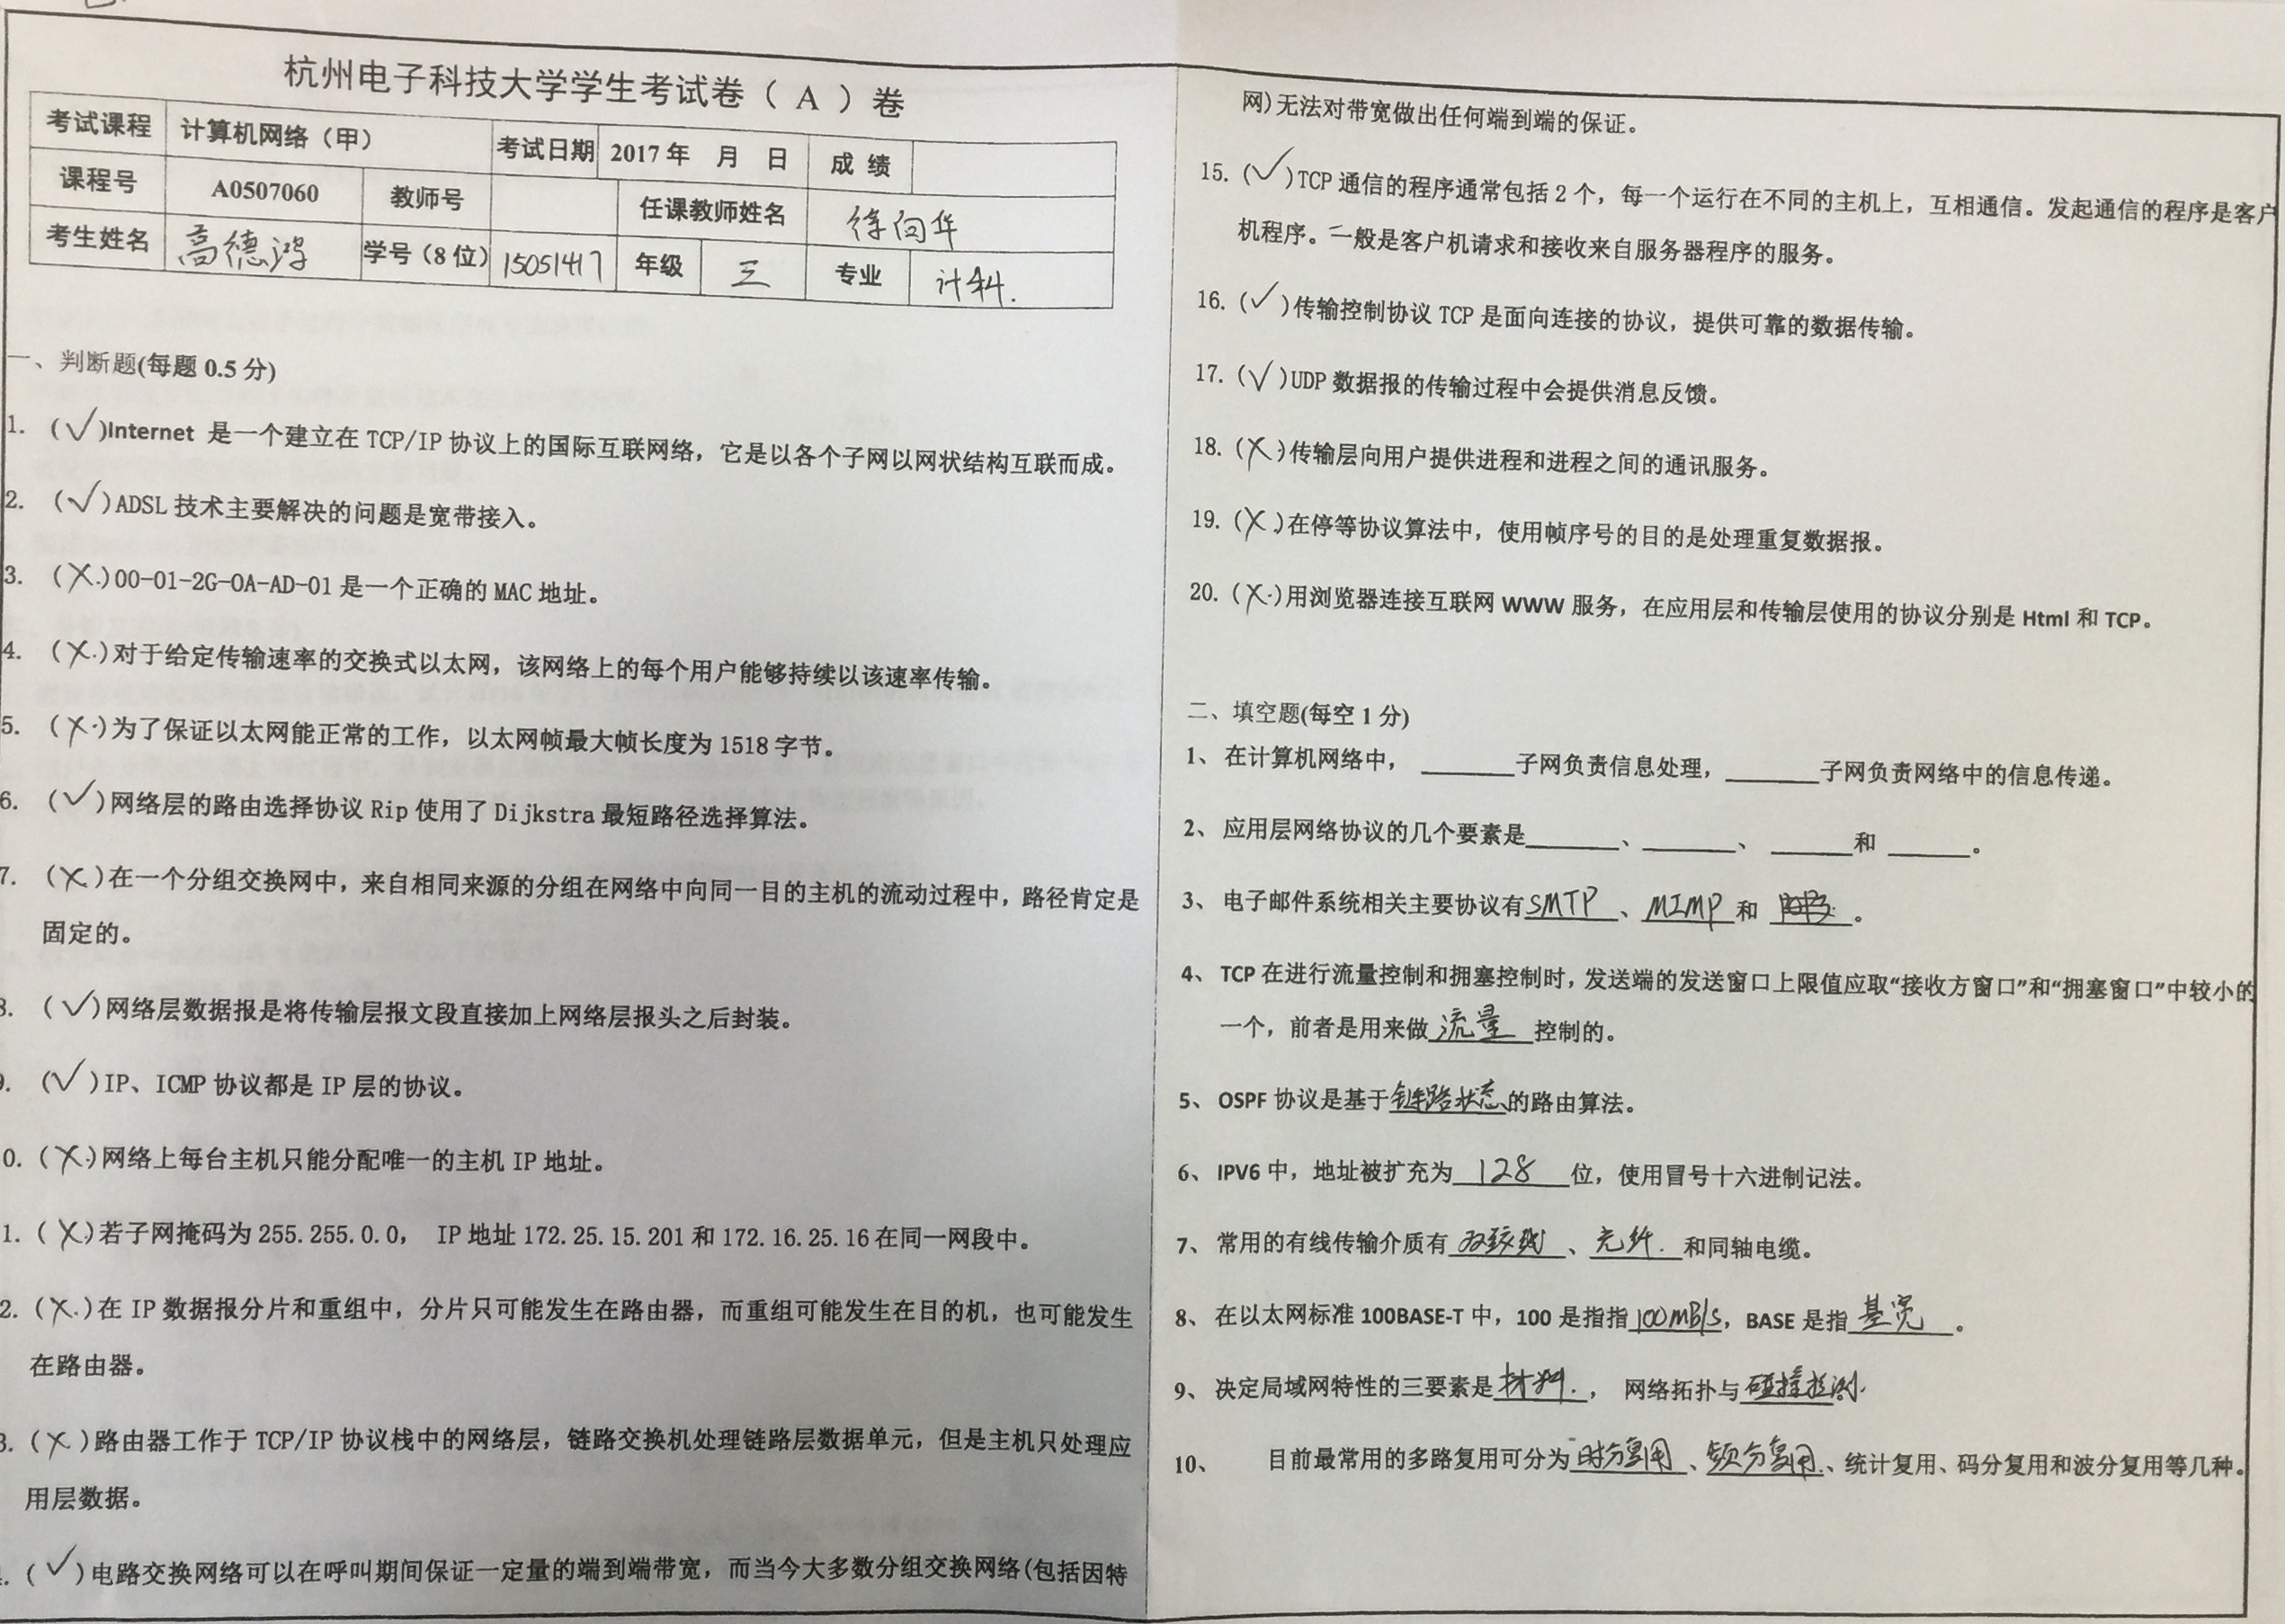 杭州电子科技大学学生考试卷（ A ）卷
考试课程 计算机网络（甲） 考试日期 2017年 月 日 成 绩
课程号 A0507060 教师号 任课教师姓名 徐向华
考生姓名 高德鸿 学号（8位） 15051417 年级 三 专业 计科.
一、判断题(每题 0.5 分)
1. (✓)Internet 是一个建立在 TCP/IP 协议上的国际互联网络，它是以各个子网以网状结构互联而成。
2. (✓)ADSL 技术主要解决的问题是宽带接入。
3. (X.)00-01-2G-0A-AD-01 是一个正确的 MAC 地址。
4. (X.)对于给定传输速率的交换式以太网，该网络上的每个用户能够持续以该速率传输。
5. (X.)为了保证以太网能正常的工作，以太网帧最大帧长度为 1518 字节。
6. (✓)网络层的路由选择协议 Rip 使用了 Dijkstra 最短路径选择算法。
7. (X.)在一个分组交换网中，来自相同来源的分组在网络中向同一目的主机的流动过程中，路径肯定是
固定的。
8. (✓)网络层数据报是将传输层报文段直接加上网络层报头之后封装。
9. (✓)IP、ICMP 协议都是 IP 层的协议。
0. (X.)网络上每台主机只能分配唯一的主机 IP 地址。
1. (X.)若子网掩码为 255.255.0.0， IP 地址 172.25.15.201 和 172.16.25.16 在同一网段中。
2. (X.)在 IP 数据报分片和重组中，分片只可能发生在路由器，而重组可能发生在目的机，也可能发生
在路由器。
3. (X.)路由器工作于 TCP/IP 协议栈中的网络层，链路交换机处理链路层数据单元，但是主机只处理应
用层数据。
. (✓)电路交换网络可以在呼叫期间保证一定量的端到端带宽，而当今大多数分组交换网络(包括因特
网)无法对带宽做出任何端到端的保证。
15. (✓)TCP 通信的程序通常包括 2 个，每一个运行在不同的主机上，互相通信。发起通信的程序是客户
机程序。一般是客户机请求和接收来自服务器程序的服务。
16. (✓)传输控制协议 TCP 是面向连接的协议，提供可靠的数据传输。
17. (✓)UDP 数据报的传输过程中会提供消息反馈。
18. (X.)传输层向用户提供进程和进程之间的通讯服务。
19. (X.)在停等协议算法中，使用帧序号的目的是处理重复数据报。
20. (X.)用浏览器连接互联网 WWW 服务，在应用层和传输层使用的协议分别是 Html 和 TCP。
二、填空题(每空 1 分)
1、在计算机网络中，________子网负责信息处理，________子网负责网络中的信息传递。
2、应用层网络协议的几个要素是________、________、 _______和 _______。
3、电子邮件系统相关主要协议有 SMTP 、 MIMP 和 。
4、TCP 在进行流量控制和拥塞控制时，发送端的发送窗口上限值应取“接收方窗口”和“拥塞窗口”中较小的
一个，前者是用来做 流量 控制的。
5、OSPF 协议是基于 链路状态 的路由算法。
6、IPV6 中，地址被扩充为 128 位，使用冒号十六进制记法。
7、常用的有线传输介质有 双绞线 、 光纤. 和同轴电缆。
8、在以太网标准 100BASE-T 中，100 是指指 100MB/s，BASE 是指 基宽 。
9、决定局域网特性的三要素是 材料. ， 网络拓扑与 碰撞检测.
10、 目前最常用的多路复用可分为 时分复用 、 频分复用. 、统计复用、码分复用和波分复用等几种。